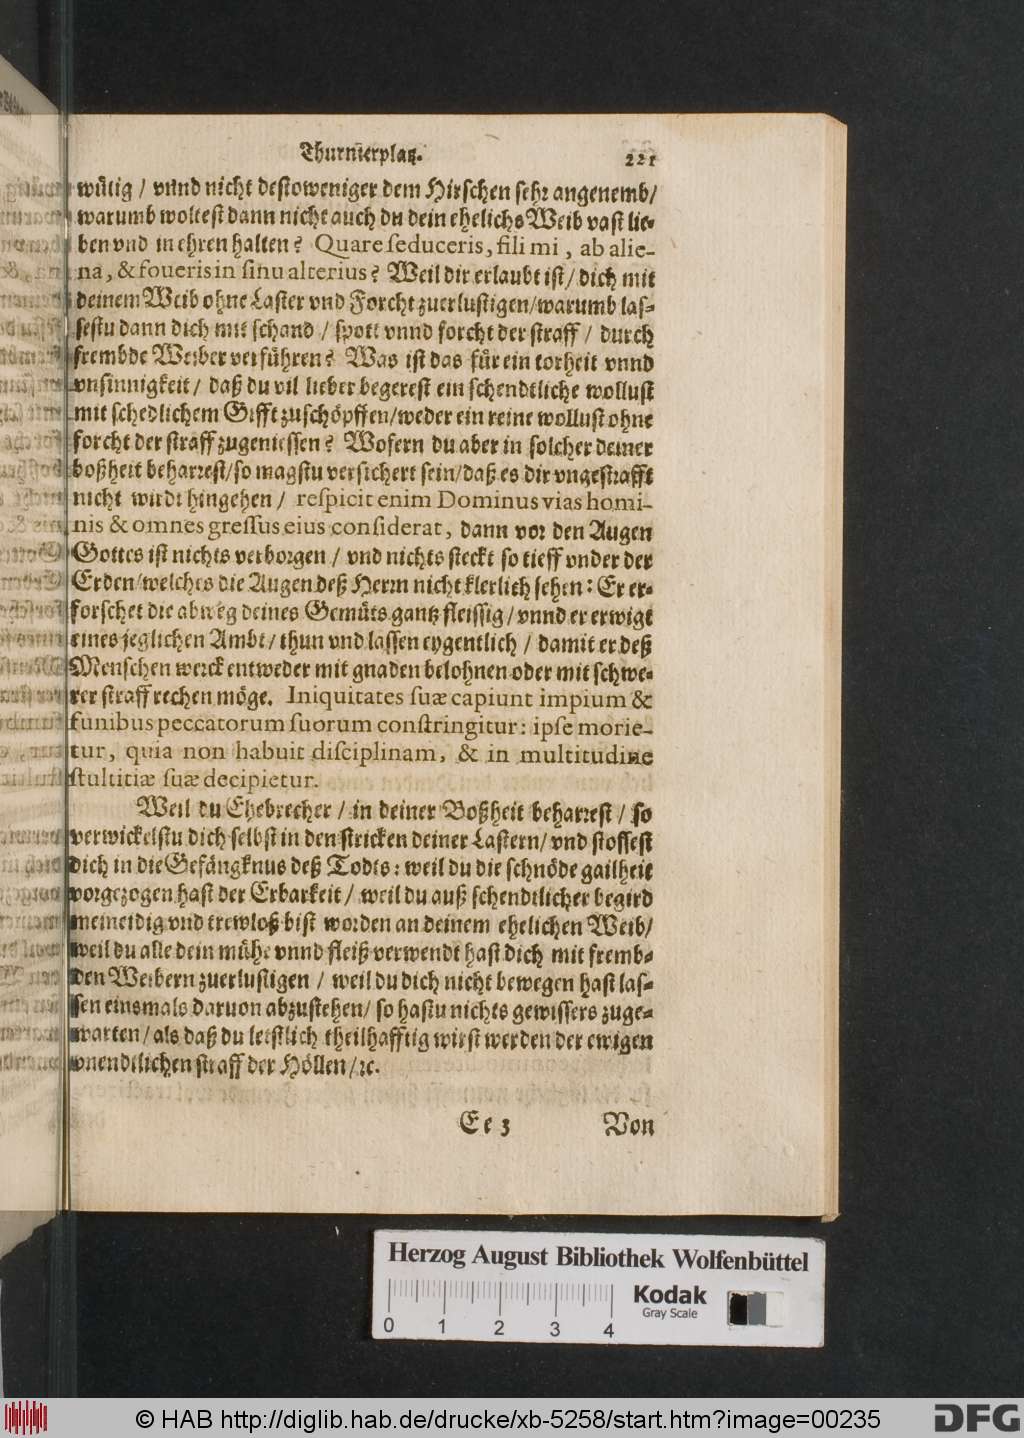 Thurnierplatz. 221
wütig / vnnd nicht destoweniger dem Hirschen sehr angenemb/
warumb woltest dann nicht auch du dein ehelichs Weib vast lie⸗
ben vnd in ehren halten? Quare seduceris, fili mi, ab alie-
na, & foueris in sinu alterius? Weil dir erlaubt ist / dich mit
deinem Weib ohne Laster vnd Forcht zuerlustigen/warumb las⸗
sestu dann dich mit schand / spott vnnd forcht der straff / durch
frembde Weiber verführen? Was ist das für ein torheit vnnd
vnsinnigkeit / daß du vil lieber begerest ein schendtliche wollust
mit schedlichem Gifft zuschöpffen/weder ein reine wollust ohne
forcht der straff zugeniessen? Wofern du aber in solcher deiner
boßheit beharrest/so magstu versichert sein/daß es dir vngestrafft
nicht wirdt hingehen / respicit enim Dominus vias homi-
nis & omnes gressus eius considerat, dann vor den Augen
Gottes ist nichts verborgen / vnd nichts steckt so tieff vnder der
Erden/welches die Augen deß Herrn nicht klerlich sehen: Er er⸗
forschet die abweg deines Gemüts gantz fleissig / vnnd er erwigt
eines jeglichen Ambt / thun vnd lassen eygentlich / damit er deß
Menschen werck entweder mit gnaden belohnen oder mit schwe⸗
rer straff rechen möge. Iniquitates suæ capiunt impium &
funibus peccatorum suorum constringitur: ipse morie-
tur, quia non habuit disciplinam, & in multitudine
stultitiæ suæ decipietur.
Weil du Ehebrecher / in deiner Boßheit beharrest / so
verwickelstu dich selbst in den stricken deiner Lastern/ vnd stossest
dich in die Gefängknus deß Todts: weil du die schnöde gailheit
vorgezogen hast der Erbarkeit / weil du auß schendtlicher begird
meineidig vnd trewloß bist worden an deinem ehelichen Weib/
weil du alle dein mühe vnnd fleiß verwendt hast dich mit fremb⸗
den Weibern zuerlustigen / weil du dich nicht bewegen hast las⸗
sen einsmals daruon abzustehen/ so hastu nichts gewissers zuge⸗
warten / als daß du letstlich theilhafftig wirst werden der ewigen
vnendtlichen straff der Höllen /ꝛc.
Ee 3 Von
Herzog August Bibliothek Wolfenbüttel
Kodak
Gray Scale
0 1 2 3 4
© HAB http://diglib.hab.de/drucke/xb-5258/start.htm?image=00235
DFG